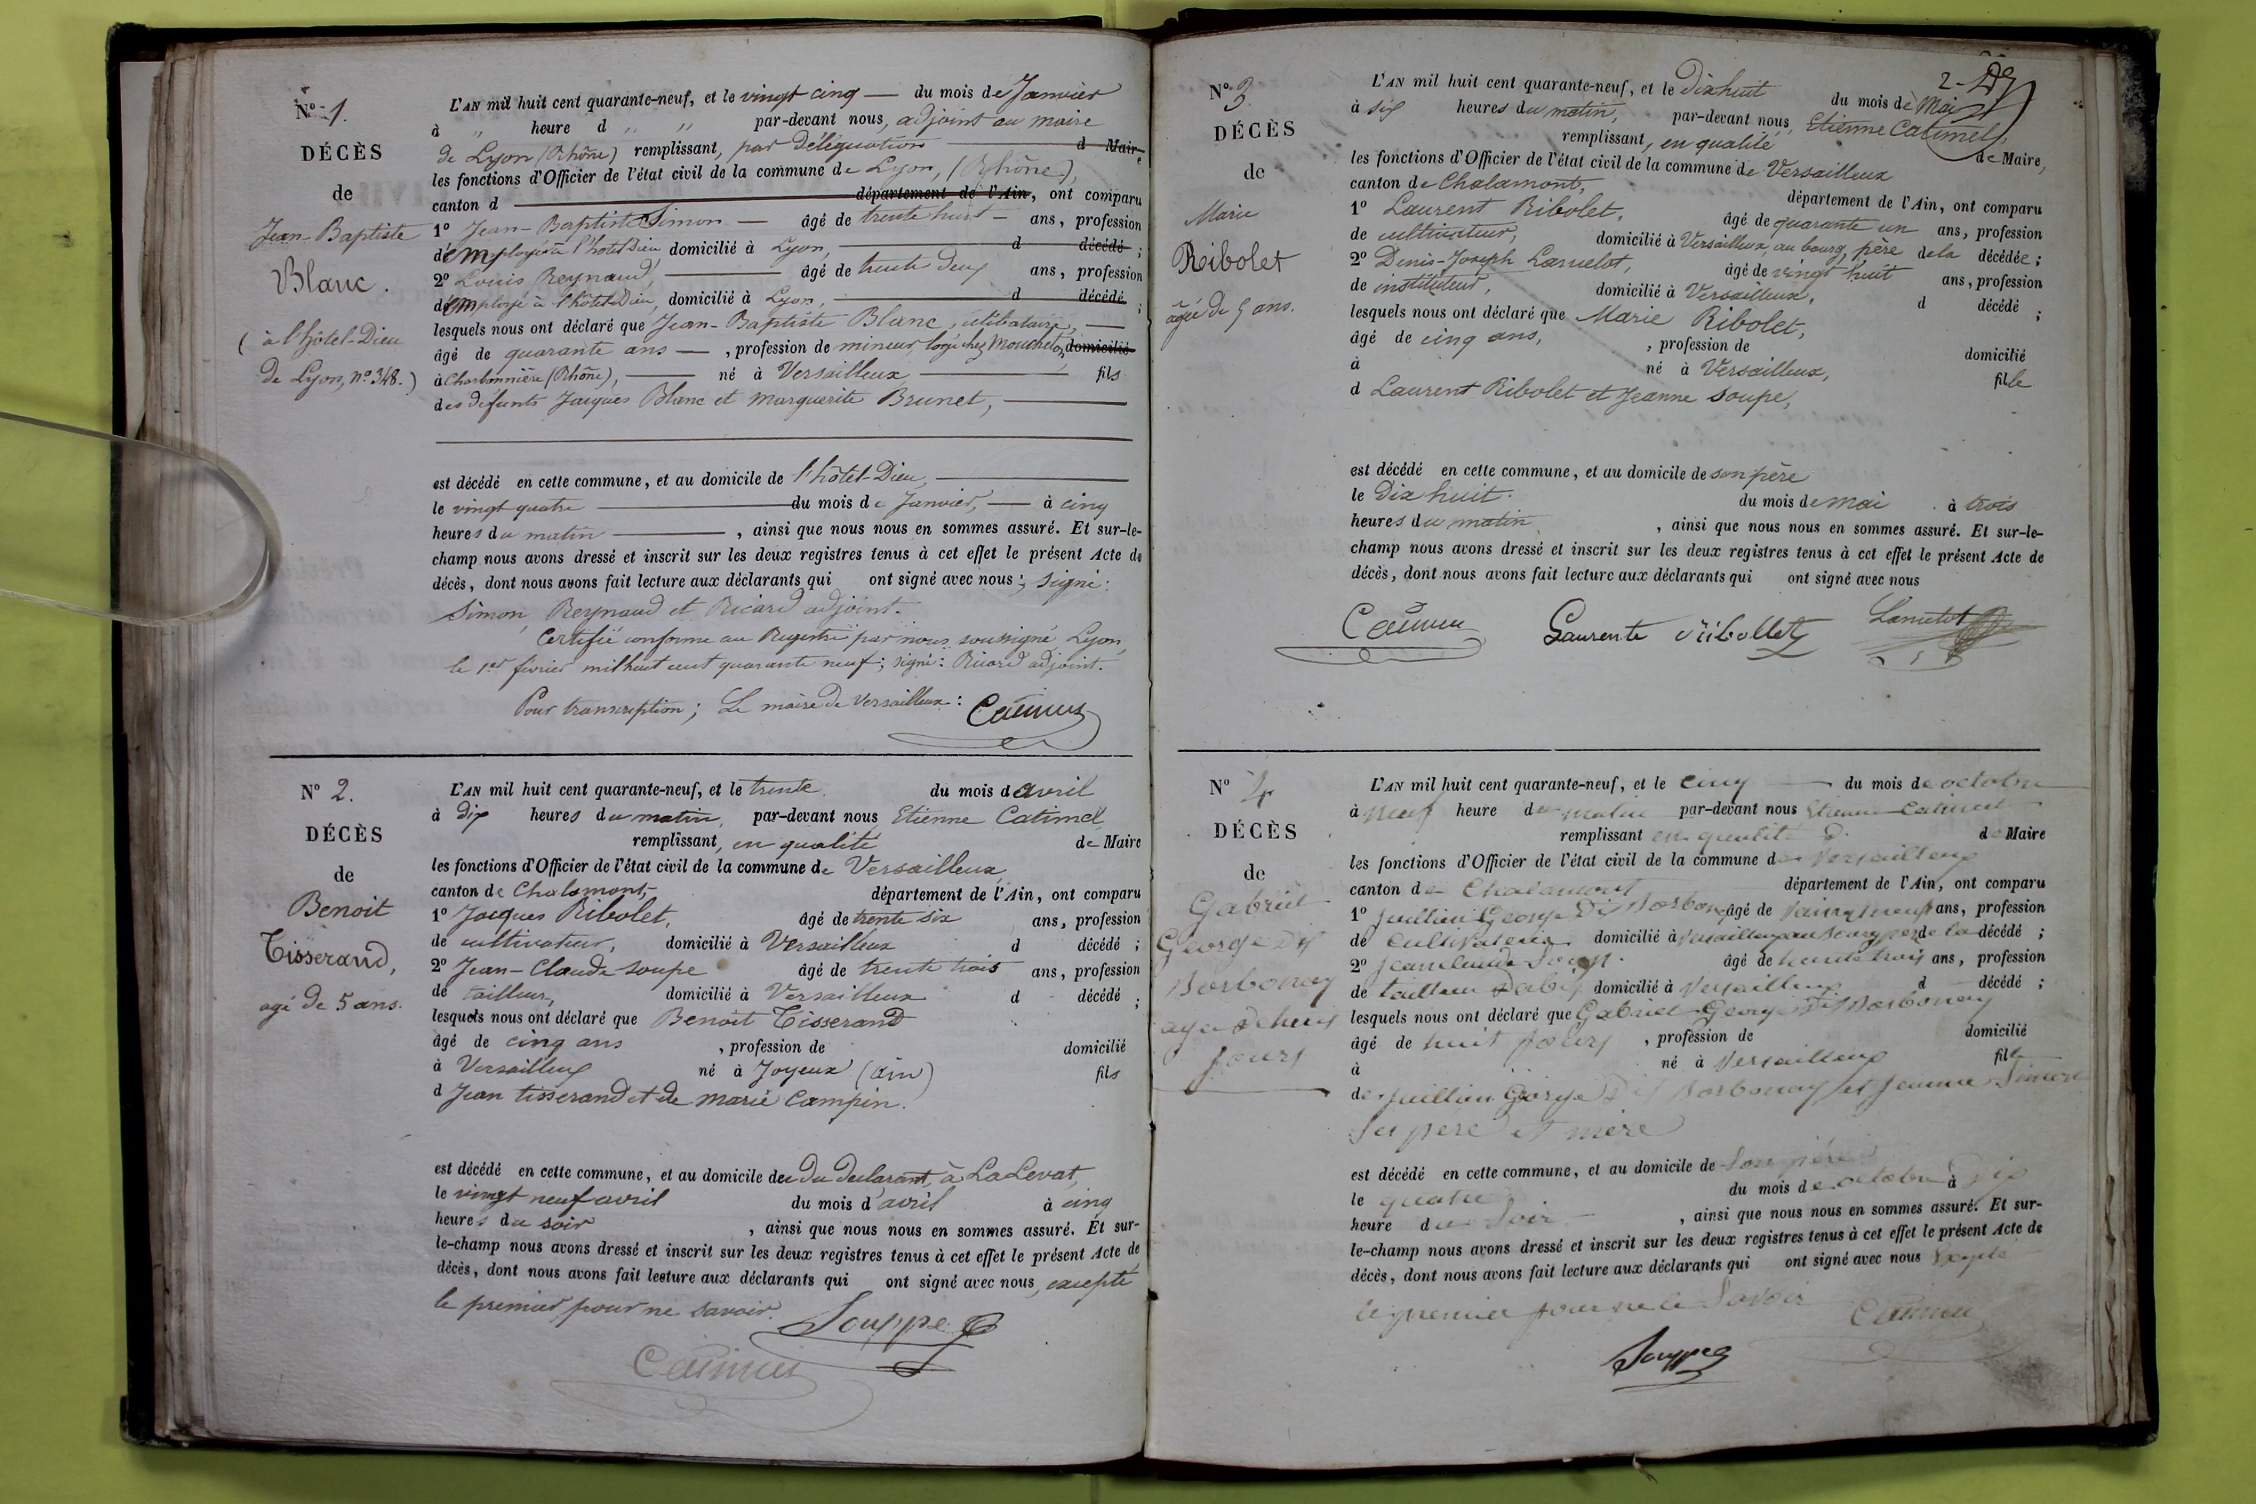 N° 1.
DÉCÈS
de
Jean-Baptiste
Blanc.
(à l'hôtel-Dieu
de Lyon, n° 348.)
L'AN mil huit cent quarante-neuf, et le vingt cinq du mois de Janvier
à " heure d " " par-devant nous, adjoint au maire
de Lyon (Rhône) remplissant, par délégation d Maire
les fonctions d'Officier de l'état civil de la commune de Lyon, (Rhône),
canton d département de l'Ain, ont comparu
1° Jean-Baptiste Simon âgé de trente huit ans, profession
d'employé à l'hôtel Dieu, domicilié à Lyon, d décédé ;
2° Louis Reynaud, âgé de trente deux ans, profession
d'employé à l'hôtel-Dieu, domicilié à Lyon, d décédé ;
lesquels nous ont déclaré que Jean-Baptiste Blanc, célibataire,
âgé de quarante ans, profession de mineur, logé chez Mouchet, domicilié
à Charbonnière (Rhône), né à Versailleux fils
des défunts Jacques Blanc et Marguerite Brunet,
est décédé en cette commune, et au domicile de l'hôtel-Dieu,
le vingt quatre du mois de Janvier, à cinq
heures du matin, ainsi que nous nous en sommes assuré. Et sur-le-
champ nous avons dressé et inscrit sur les deux registres tenus à cet effet le présent Acte de
décès, dont nous avons fait lecture aux déclarants qui ont signé avec nous; signé:
Simon, Reynaud et Ricard adjoint.
Certifié conforme au Registre par nous soussigné Lyon,
le 1er février mil huit cent quarante neuf; signé: Ricard adjoint.
Pour transcription; Le maire de Versailleux:
Catimel
N° 2.
DÉCÈS
de
Benoit
Tisserand,
agé de 5 ans.
L'AN mil huit cent quarante-neuf, et le trente du mois d avril
à dix heures du matin, par-devant nous Etienne Catimel,
remplissant, en qualité de Maire
les fonctions d'Officier de l'état civil de la commune de Versailleux,
canton de Chalamont, département de l'Ain, ont comparu
1° Jacques Ribolet, âgé de trente six ans, profession
de cultivateur, domicilié à Versailleux d décédé ;
2° Jean-Claude Soupe âgé de trente trois ans, profession
de tailleur, domicilié à Versailleux d décédé ;
lesquels nous ont déclaré que Benoit Tisserand
âgé de cinq ans, profession de domicilié
à Versailleux né à Joyeux (ain) fils
d Jean tisserand et de marie Campin.
est décédé en cette commune, et au domicile de du declarant, à La Levat,
le vingt neuf avril du mois d'avril à cinq
heures du soir, ainsi que nous nous en sommes assuré. Et sur-
le-champ nous avons dressé et inscrit sur les deux registres tenus à cet effet le présent Acte de
décès, dont nous avons fait lecture aux déclarants qui ont signé avec nous, excepté
le premier pour ne savoir.
Souppe
Catimel
2-
N° 3.
DÉCÈS
de
Marie
Ribolet
agée de 5 ans.
L'AN mil huit cent quarante-neuf, et le dix huit du mois de Mai
à six heures du matin, par-devant nous, Etienne Catimel,
remplissant, en qualité de Maire,
les fonctions d'Officier de l'état civil de la commune de Versailleux
canton de Chalamont, département de l'Ain, ont comparu
1° Laurent Ribolet, âgé de quarante un ans, profession
de cultivateur, domicilié à Versailleux, au bourg, père de la décédée ;
2° Denis-Joseph Lamelot, âgé de vingt huit ans, profession
de instituteur, domicilié à Versailleux, d décédé ;
lesquels nous ont déclaré que Marie Ribolet,
âgé de cinq ans, profession de domicilié
à né à Versailleux, fille
d Laurent Ribolet et Jeanne Soupe,
est décédé en cette commune, et au domicile de son père
le dix huit. du mois de mai à trois
heures du matin, ainsi que nous nous en sommes assuré. Et sur-le-
champ nous avons dressé et inscrit sur les deux registres tenus à cet effet le présent Acte de
décès, dont nous avons fait lecture aux déclarants qui ont signé avec nous
Catimel Laurente Ribollet Lamelot
N° 4
DÉCÈS
de
Gabriel
George Dit
Borbonay
agé de huit
jours
L'AN mil huit cent quarante-neuf, et le cinq du mois de octobre
à neuf heure du matin par-devant nous Etienne Catimel
remplissant en qualité d de Maire
les fonctions d'Officier de l'état civil de la commune de Versailleux
canton de Chalamont département de l'Ain, ont comparu
1° Juillien George Dit Borbonay âgé de vaingt neuf ans, profession
de Cultivateur domicilié à Versailleux au bourg père de la décédé ;
2° Jean Claude Soupe. âgé de trente trois ans, profession
de tailleur Dabis domicilié à Versailleux d décédé ;
lesquels nous ont déclaré que Gabriel George Dit Borbonay
âgé de huit jours, profession de domicilié
à né à Versailleux fils
de Juillien George Dit Borbonay et Jeanne Simon
Ses père et mère
est décédé en cette commune, et au domicile de Son père
le quatre du mois de octobre à dix
heure du Soir, ainsi que nous nous en sommes assuré. Et sur-
le-champ nous avons dressé et inscrit sur les deux registres tenus à cet effet le présent Acte de
décès, dont nous avons fait lecture aux déclarants qui ont signé avec nous
le premier pour ne le Savoir Catimel
Souppe